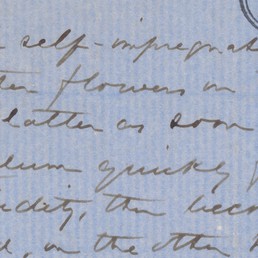 self-impregnat
flowers on
latter as soon
quickly
then beco
, on the other